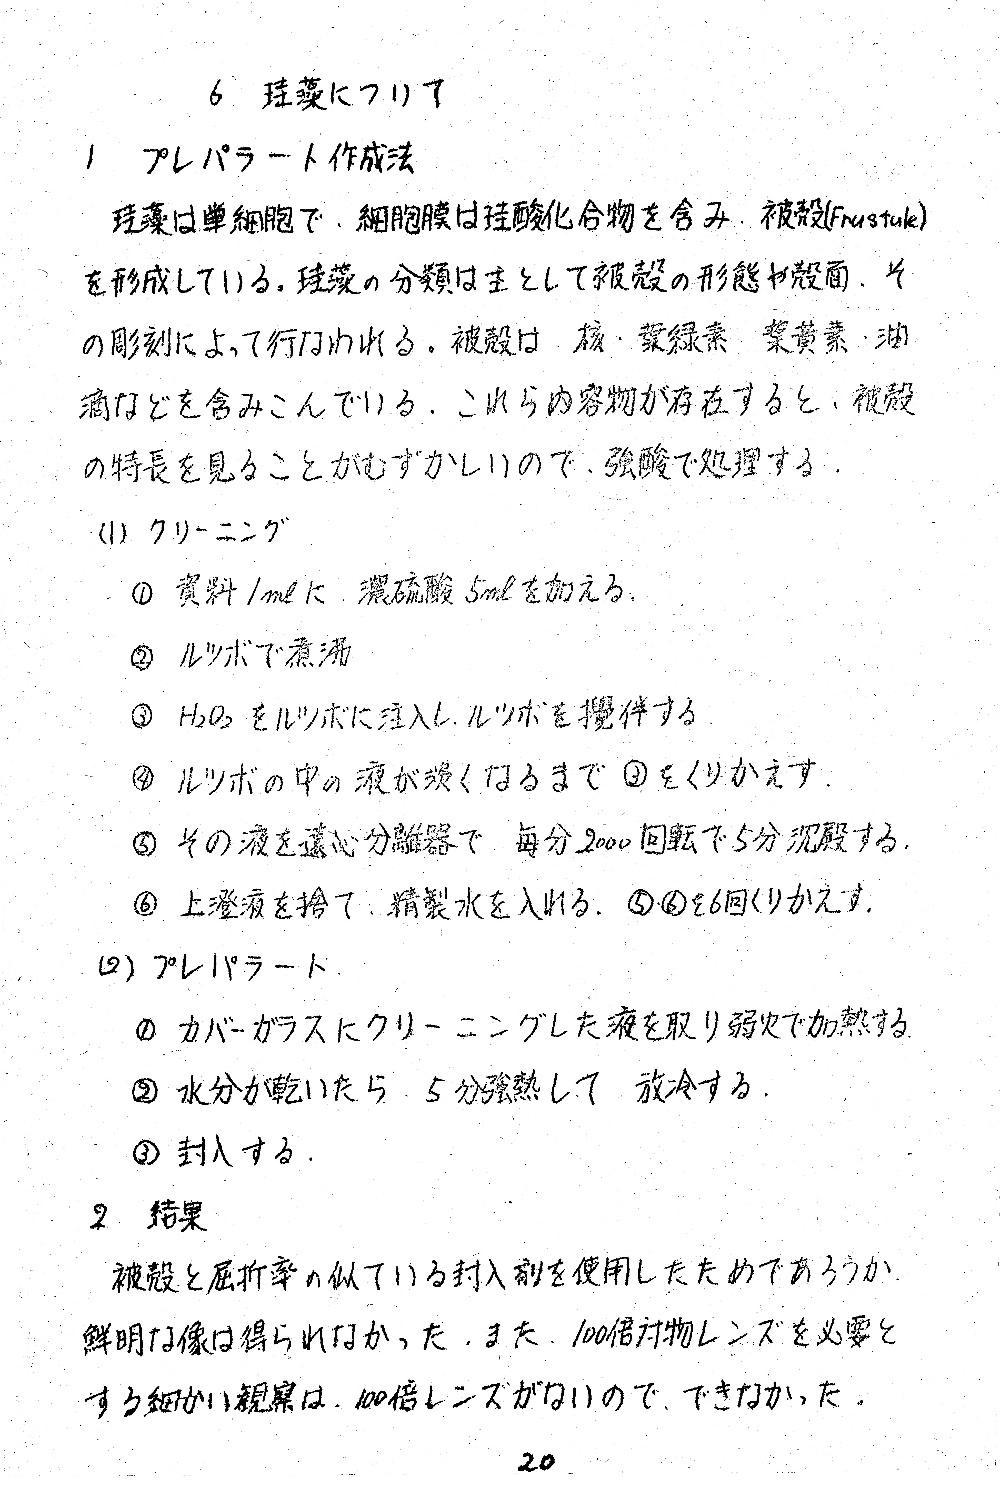 6 珪藻について
1 プレパラート作成法
珪藻は単細胞で、細胞膜は珪酸化合物を含み、被殻(Frustule)
を形成している。珪藻の分類は主として被殻の形態や殻面、そ
の彫刻によって行なわれる。被殻は 核・葉緑素 葉黄素・油
滴などを含みこんでいる。これら内容物が存在すると、被殻
の特長を見ることがむずかしいので、強酸で処理する。
(1) クリーニング
① 資料1mlに、濃硫酸5mlを加える。
② ルツボで煮沸
③ H₂O₂をルツボに注入し、ルツボを攪伴する
④ ルツボの中の液が淡くなるまで③をくりかえす。
⑤ その液を遠心分離器で 毎分2000回転で5分沈殿する。
⑥ 上澄液を捨て、精製水を入れる。⑤・⑥を6回くりかえす。
(2) プレパラート
① カバーガラスにクリーニングした液を取り弱火で加熱する
② 水分が乾いたら 5分強熱して 放冷する。
③ 封入する。
2 結果
被殻と屈折率の似ている封入剤を使用したためであろうか
鮮明な像は得られなかった。また、100倍対物レンズを必要と
する細かい観察は、100倍レンズがないので、できなかった。
20